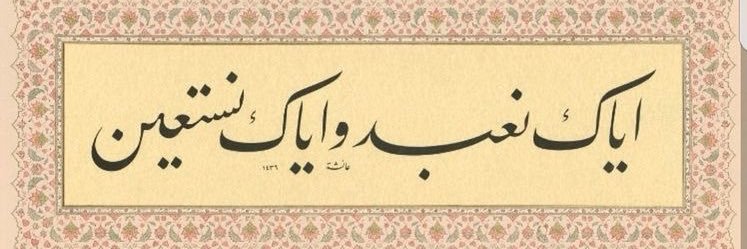 اياك نعبد و اياك نستعين
عائشة ١٤٣٦